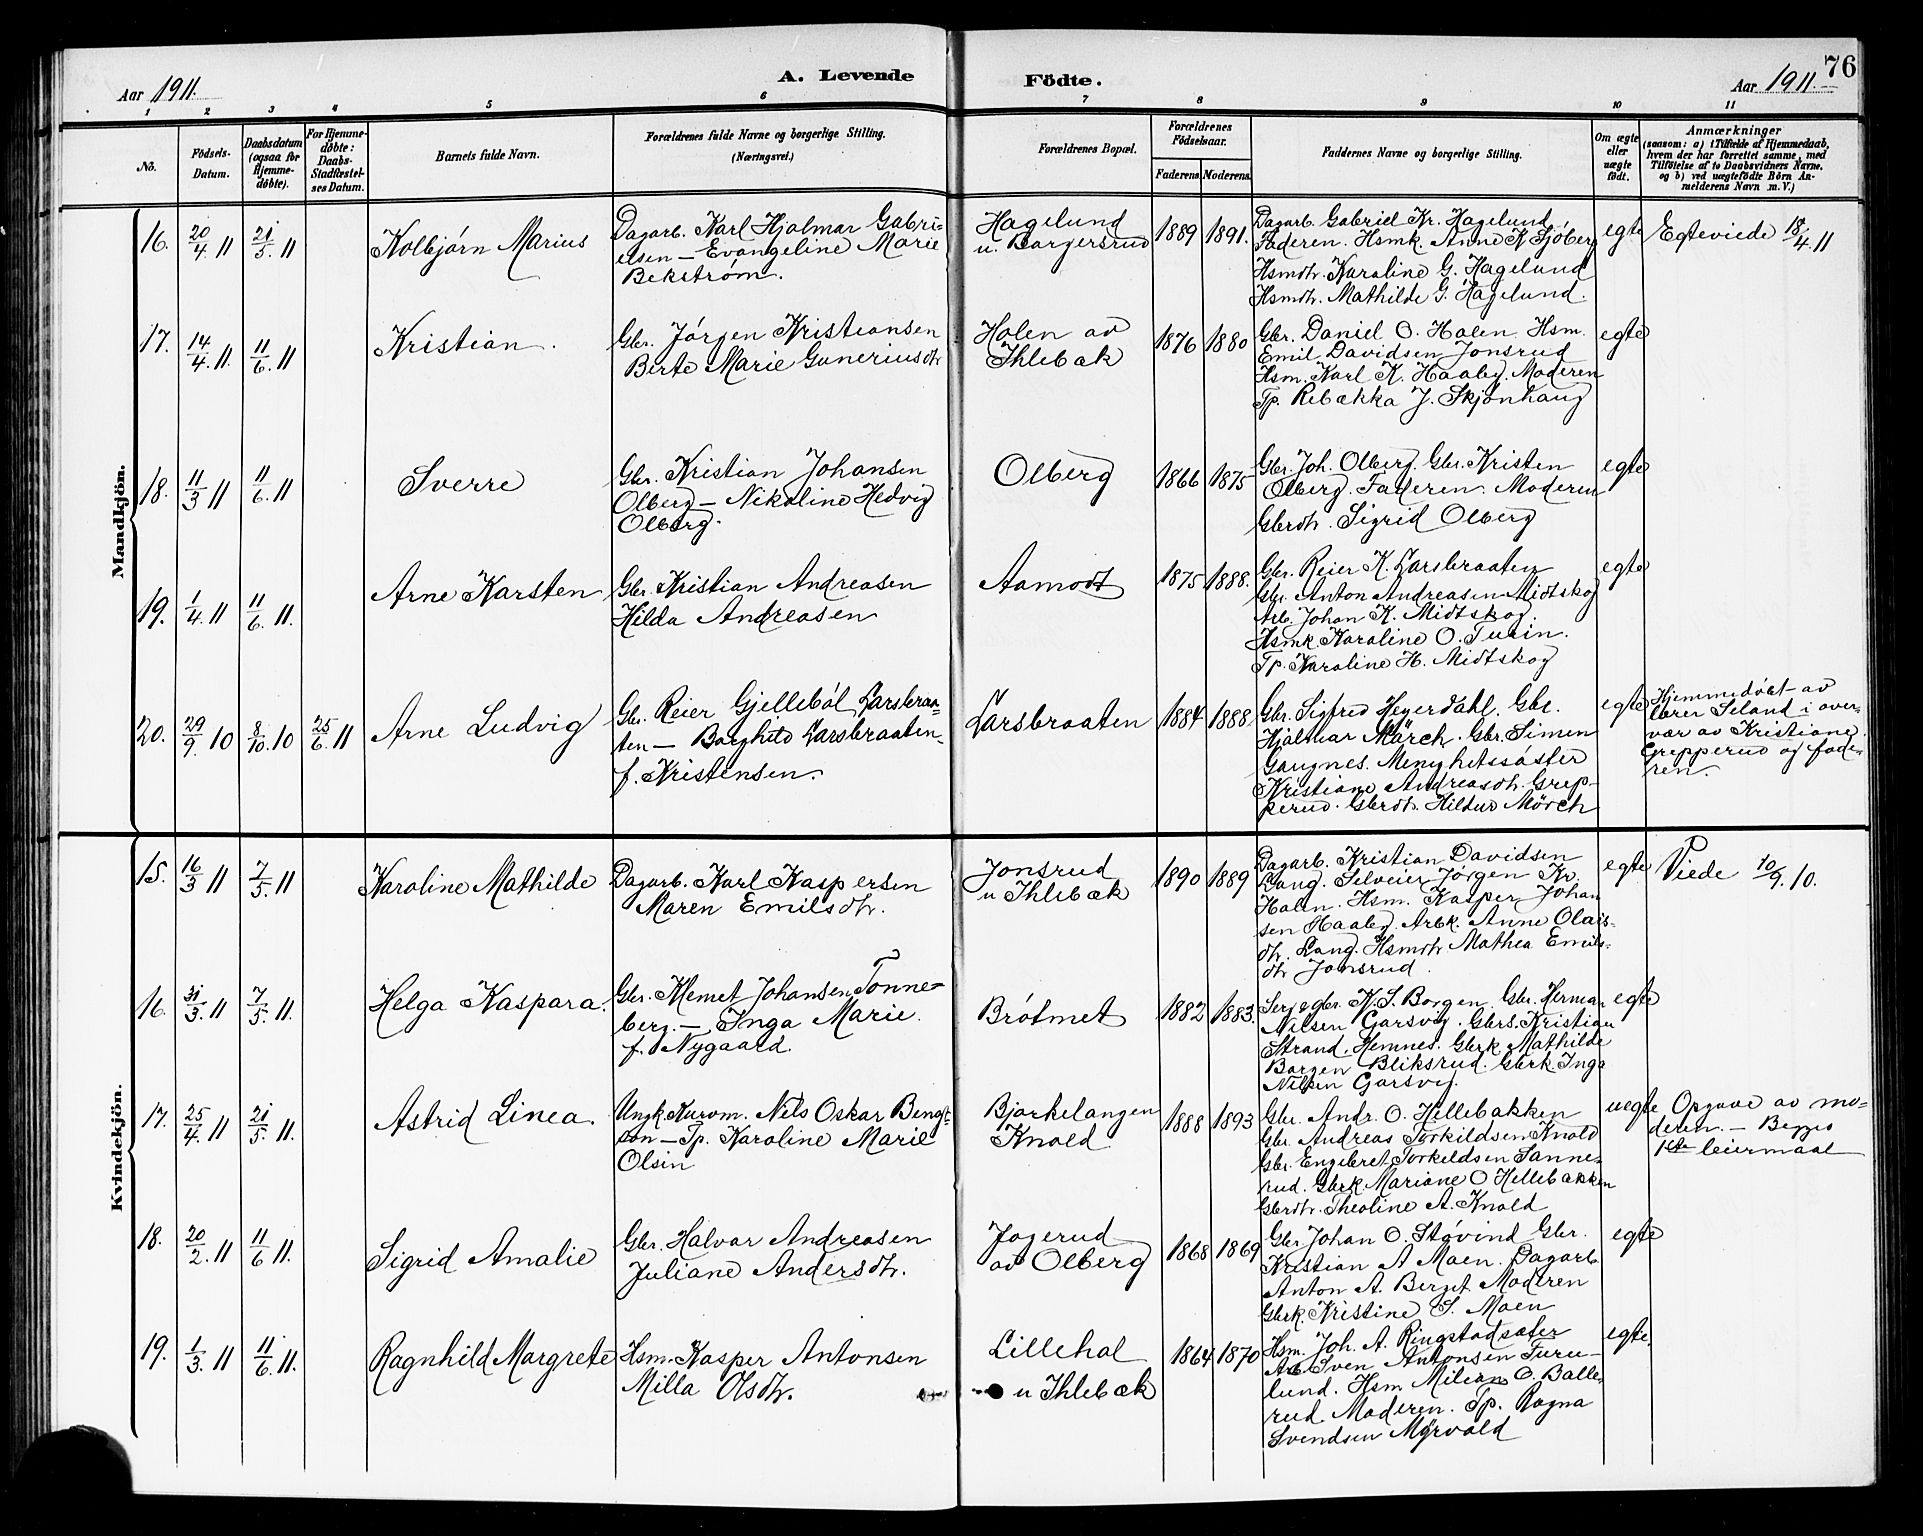 76
Aar 1911.
A. Levende
Födte.
Aar 1911.
1 2 3 4 5 6 7 8 9 10 11
No.
Födsels-
Datum.
Daabsdatum
(ogsaa for
Hjemme-
döbte).
For Hjemme-
döbte:
Daabs-
Stadfæstel-
ses Datum.
Barnets fulde Navn.
Forældrenes fulde Navne og borgerlige Stilling.
(Næringsvei.)
Forældrenes Bopæl.
Forældrenes
Födselsaar.
Faderens.
Moderens.
Faddernes Navne og borgerlige Stilling.
Om ægte
eller
uægte
födt.
Anmærkninger
(saasom: a) i Tilfælde af Hjemmedaab,
hvem der har forrettet samme, med
Tilföielse af to Daabsvidners Navne.
og b) ved uægtefödte Börn An-
melderens Navn m. V.)
Mandkjön.
16. 20/4 11 21/5 11
Kolbjörn Marius
Dagarb. Karl Hjalmar Gabri-
elsen — Evangeline Marie
Bekström.
Hagelund
u. Borgersrud
1889 1891.
Dagarb. Gabriel Kr. Hagelund
Faderen. Hsmk. Anne K Sjöberg
Hsmdtr. Karoline G. Hagelund
Hsmdtr. Mathilde G. Hagelund.
egte
Egteviede 18/4. 11
17. 14/4. 11. 11/6. 11
Kristian.
Gbr. Jörgen Kristiansen
Birte Marie Gunneriusdtr
Holen av
Ihlebæk
1876 1880
Gbr. Daniel O. Holen. Hsm.
Emil Davidsen Jonsrud
Hsm. Karl K. Haaby. Moderen
Tp. Rebækka J. Skjönhaug
egte
18. 11/3 11 11/6. 11
Sverre
Gbr. Kristian Johansen
Olberg — Nikoline Hedvig
Olberg.
Olberg
1866 1875
Gbr. Joh. Olberg. Gbr. Kristen
Olberg. Faderen. Moderen
Gbrdtr. Sigrid Olberg
egte
19. 1/4. 11 11/6. 11.
Arne Karsten
Gbr. Kristian Andreasen
Hilda Andreasen
Aamodt
1875 1888.
Gbr. Reier K. Larsbraaten
Gbr. Anton Andreasen Midtskog
Arb. Johan K. Midtskog.
Hsmk. Karoline O. Tusin.
Tp. Karoline H. Midtskog
egte
20. 29/9. 10 8/10. 10 25/6. 11
Arne Ludvig
Gbr. Reier Gjelleböl Larsbraa-
ten — Borghild Larsbraaten
f. Kristensen.
Larsbraaten
1884 1888.
Gbr. Sigfred Heyerdahl. Gbr.
Hjalmar Mörch. Gbr. Simen
Gaugnes. Menighetssöster
Kristiane Andreasdtr. Grep-
perud. Gbrdtr. Hildur Mörch
egte
Hjemmedöbt av
lærer Seland i over-
vær av Kristiane
Grepperud og fade-
ren.
Kvindekjön.
15. 16/3 11 7/5. 11
Karoline Mathilde
Dagarb. Karl Kaspersen
Maren Emilsdtr.
Jonsrud
u Ihlebæk
1890 1889
Dagarb. Kristian Davidsen
Lang. Selveier Jörgen Kr.
Holen. Hsm. Kasper Johan
sen Haaby. Arbk. Anne Olais-
dtr. Lang. Hsmdtr Mathea Emils-
dtr Jonsrud.
egte
Viede 10/9. 10.
16. 31/3. 11 7/5. 11.
Helga Kaspara.
Gbr. Klemet Johansen Tonne-
berg. — Inga Marie
f. Nygaard.
Brötmet
1882 1883.
Serg. egbr. K. S. Borgen. Gbr. Herman
Nilsen Garsvig. Gbrs. Kristian
Strand. Hemnes. Gbrk Mathilde
Borgen Bliksrud. Gbrk. Inga
Nilsen Garsvig.
egte
17. 25/4. 11 21/5. 11.
Astrid Linea.
Ungk. Kurvm. Nils Oskar Bengt-
son — Tp. Karoline Marie
Olsin
Bjørkelangen
Knold
1888 1893
Gbr. Andr. O. Hillebakken
Gbr. Andreas Torkildsen Knold
Gbr. Engebret Torkildsen Sanne-
rud. Gbrk. Mariane O Hillebækken
Gbrdtr. Theoline A. Knold
uegte
Opgave av mo-
deren. — Begges
1ste leiermaal
18. 20/2. 11 11/6 11.
Sigrid Amalie
Gbr. Halvor Andreasen
Juliane Andersdtr.
Jogerud
av Olberg
1868 1869
Gbr Johan O. Stövind Gbr.
Kristian A Moen. Dagarb
Anton A. Berget Moderen
Gbrk. Kristine S. Moen
egte
19. 1/3. 11 11/6. 11.
Ragnhild Margrete
Hsm. Kasper Antonsen
Milla Olsdtr.
Lillehol
u Ihlebæk
1864 1870
Hsm. Joh. A. Ringstadsæter
Arb Sven Antonsen Furu-
lund. Hsm Milian O. Balle-
rud. Moderen. Tp. Ragna
Svendsen Myrvold
egte.